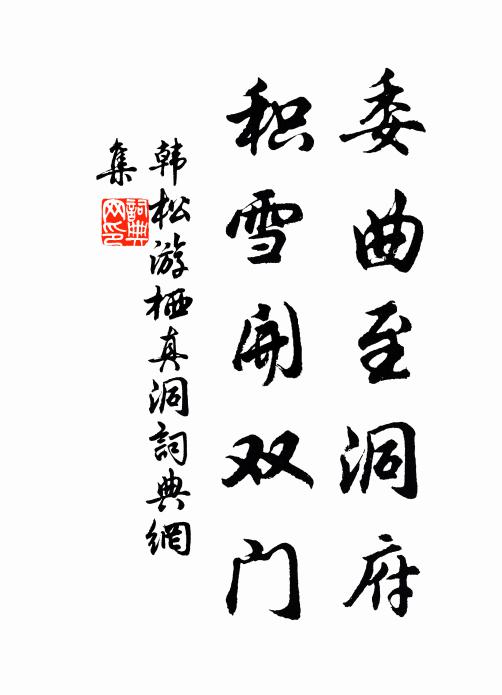 委曲至洞府
积雪开双门
韩松游栖真洞詞典網
集
詞典
网印